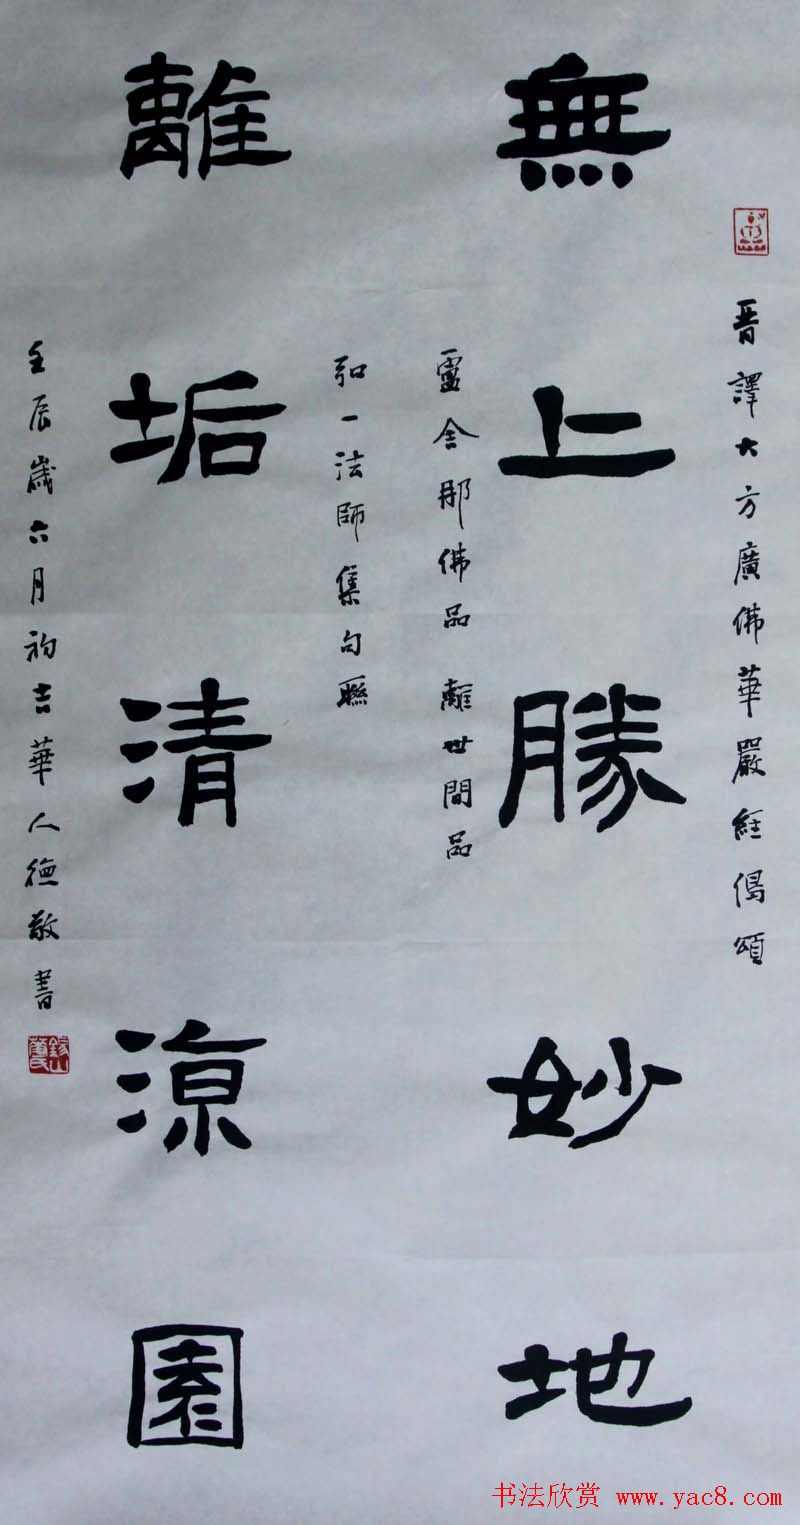 晉譯大方廣佛華嚴經偈頌
無上勝妙地
盧舍那佛品 離世間品
弘一法師集句聯
離垢清涼園
壬辰歲六月初吉華人德敬書
书法欣赏 www.yac8.com